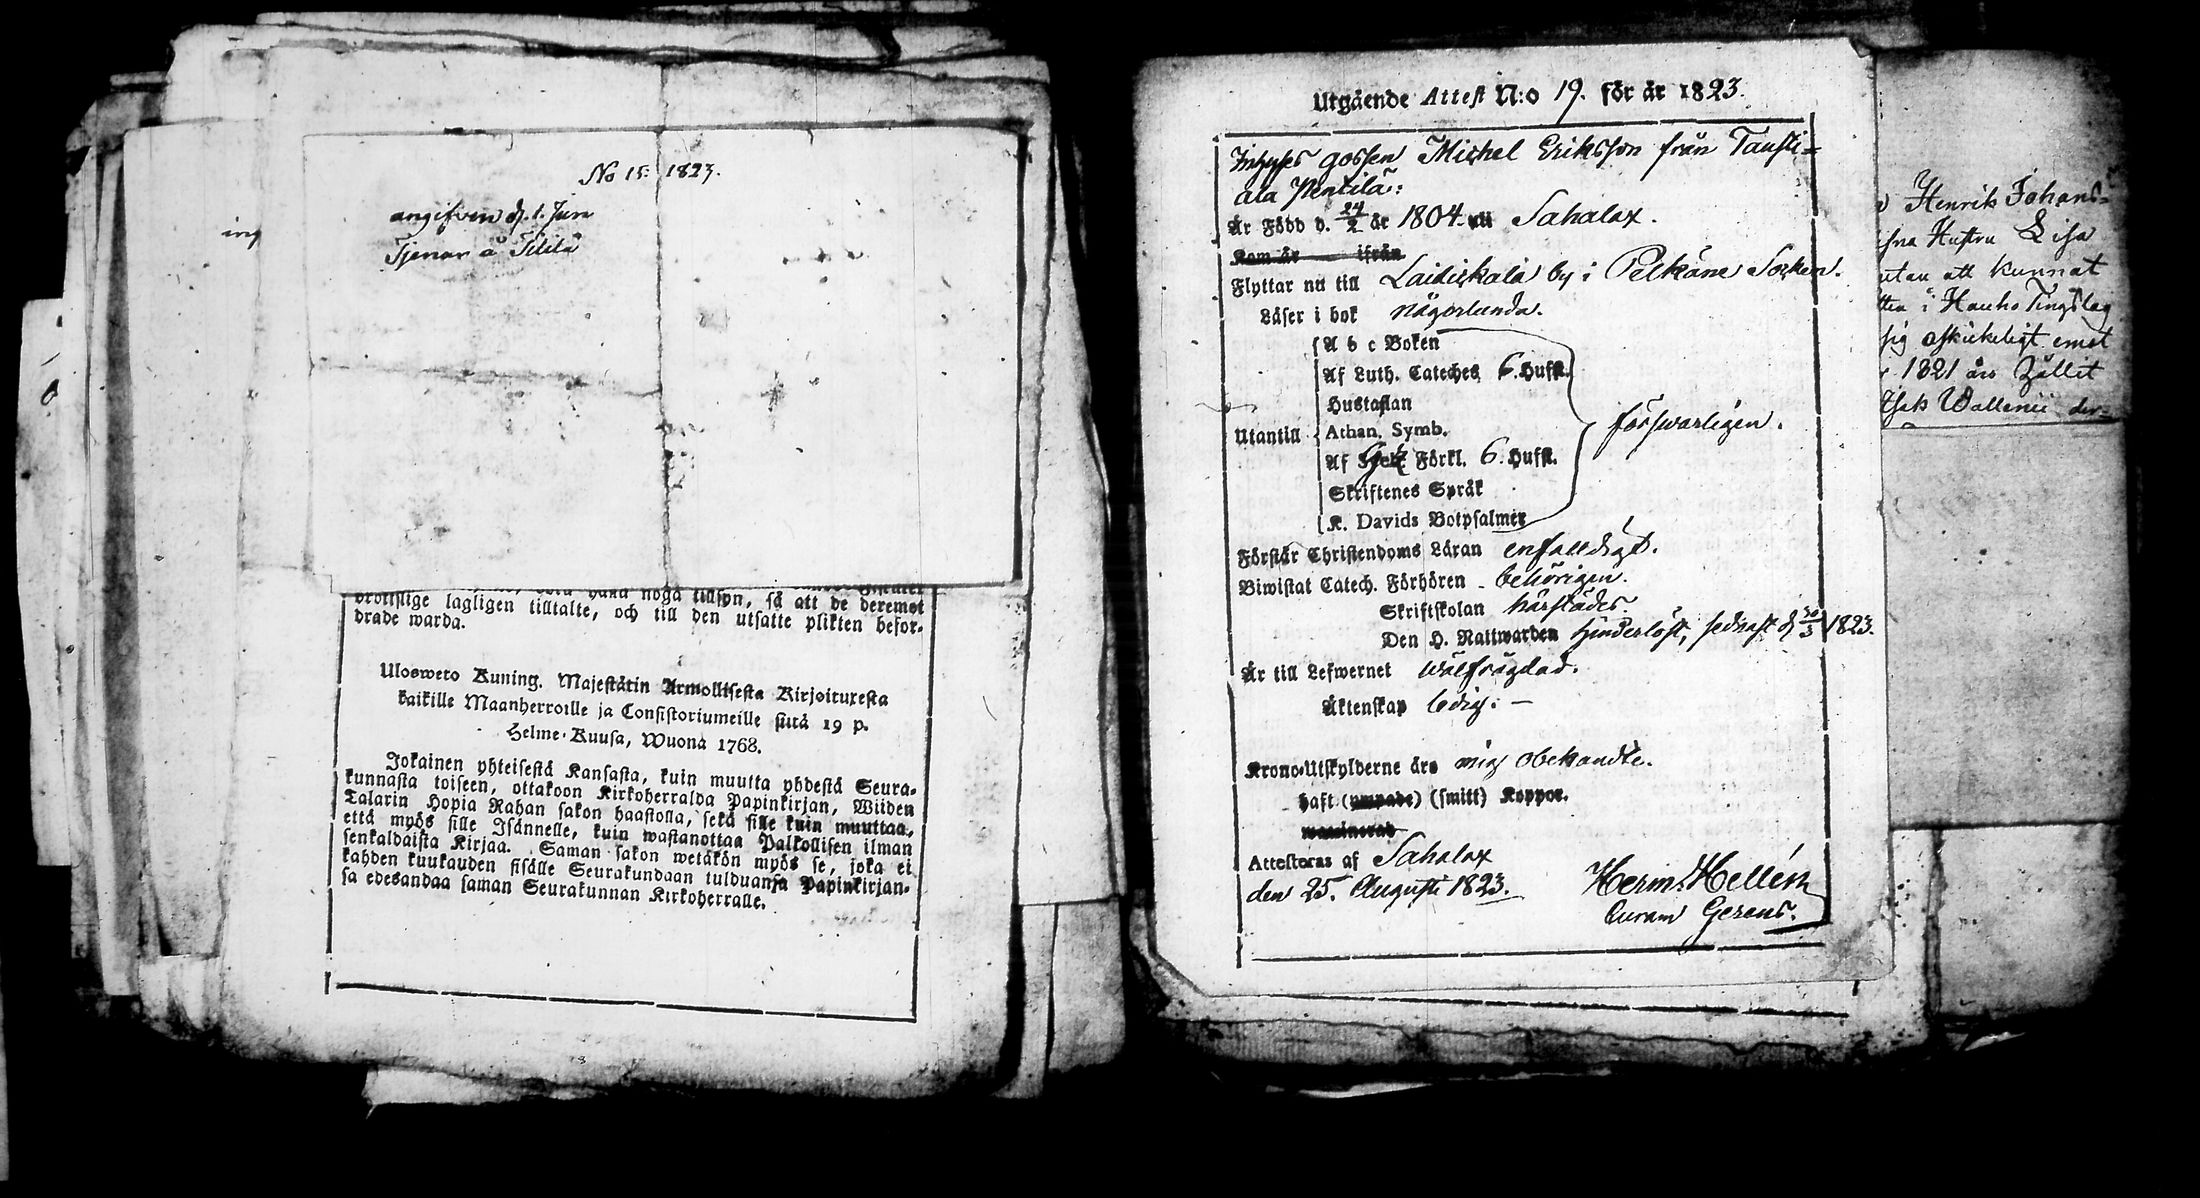 No 15. 1823.
angifven d. 1. Jun
Tjenar å
brottslige lagligen tilltalte, och till den utsatte plikten befor-
drade warda.
Ulosweto Kuning. Majestätin Armollisesta Kirjoituxesta
kaikille Maanherroille ja Consistoriumeille siitä 19 p.
Helme-Kuusa, Wuona 1768.
Jokainen yhteisestä Kansasta, kuin muutta yhdestä Seura-
kunnasta toiseen, ottakoon Kirkoherralda Papinkirjan, Wiiden
Talarin Hopia Rahan sakon haastolla, sekä sille kuin muuttaa,
että myös sille Isännelle, kuin wastanottaa Palkollisen ilman
senkaldaista Kirjaa. Saman sakon wetäkön myös se, joka ei
kahden kuukauden sisälle Seurakundaan tulduansa Papinkirjan-
sa edesandaa saman Seurakunnan Kirkoherralle.
Utgående Attest N:o 19. för år 1823.
Inhyses gossen Michel Eriksson från Tausti=
ala Pentilä:
Är Född d. 24/2 år 1804 uti Sahalax.
Kom år ifrån
Flyttar nu till Laidickala by i Pelkäne Socken.
Läser i bok någorlunda.
A b c Boken
Af Luth. Cateches 6. Hufst.
Hustaflan
Utantill Athan. Symb. försvarligen.
Af Förkl. 6. Hufst.
Skriftenes Språk
K. Davids Botpsalmer
Förstår Christendoms Läran enfalldigt.
Biwistat Catech. Förhören behörigen.
Skriftskolan härstädes.
Den H. Nattwarden hinderlöst, sednast d 30/3 1823.
Är till Lefwernet wälfrägdad.
Äktenskap ledig. —
Krono-Utskylderne äro mig obekandte.
haft (ympade) (smitt) Koppor.
Attesteras af Sahalax
den 25. Augusti 1823. Herm. Hellén
Curam Gerens.
Henrik Johans=
Hustru Lisa
utan att kunnat
i Hauho Tingslag
sig oskickeligt emot
1821 års
Wallenii der=